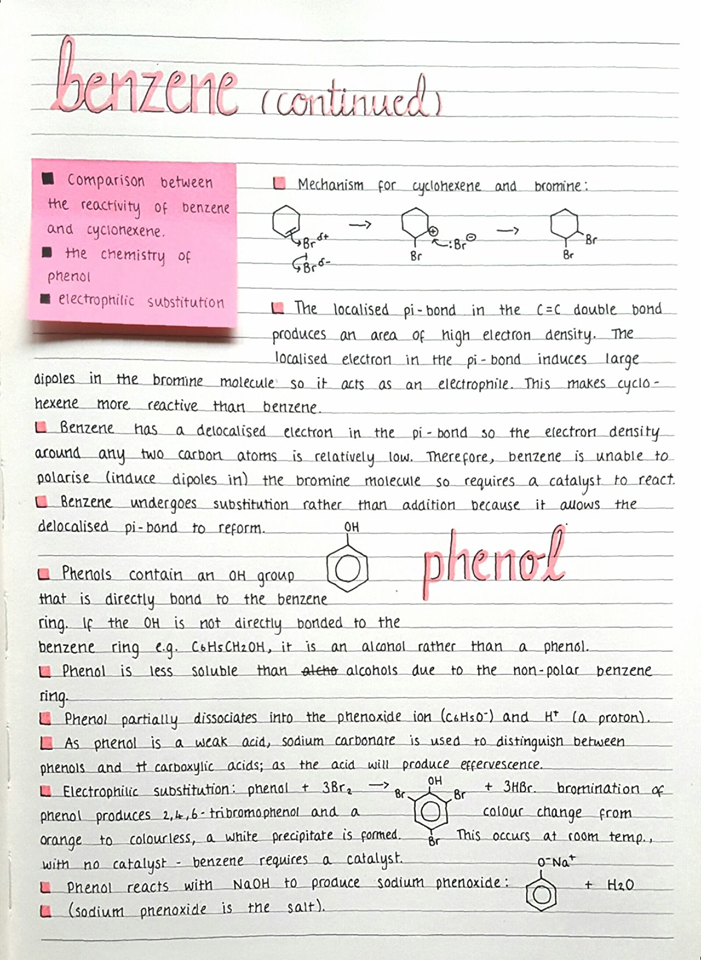 benzene (continued)
■ Comparison between
the reactivity of benzene
and cyclohexene.
■ the chemistry of
phenol
■ electrophilic substitution
Mechanism for cyclohexene and bromine:
Br δ+
Br δ-
→
⊕
:Br ⊖
Br
→
Br
Br
The localised pi-bond in the C=C double bond
produces an area of high electron density. The
localised electron in the pi-bond induces large
dipoles in the bromine molecule so it acts as an electrophile. This makes cyclo-
hexene more reactive than benzene.
Benzene has a delocalised electron in the pi-bond so the electron density
around any two carbon atoms is relatively low. Therefore, benzene is unable to
polarise (induce dipoles in) the bromine molecule so requires a catalyst to react.
Benzene undergoes substitution rather than addition because it allows the
delocalised pi-bond to reform.
OH
phenol
Phenols contain an OH group
that is directly bond to the benzene
ring. If the OH is not directly bonded to the
benzene ring e.g. C6H5CH2OH, it is an alcohol rather than a phenol.
Phenol is less soluble than alcho alcohols due to the non-polar benzene
ring.
Phenol partially dissociates into the phenoxide ion (C6H5O⁻) and H⁺ (a proton).
As phenol is a weak acid, sodium carbonate is used to distinguish between
phenols and tt carboxylic acids; as the acid will produce effervescence.
Electrophilic substitution: phenol + 3Br₂ → OH Br Br Br + 3HBr. bromination of
phenol produces 2,4,6-tribromophenol and a colour change from
orange to colourless, a white precipitate is formed. This occurs at room temp.,
with no catalyst - benzene requires a catalyst.
Phenol reacts with NaOH to produce sodium phenoxide: O⁻Na⁺ + H2O
(sodium phenoxide is the salt).